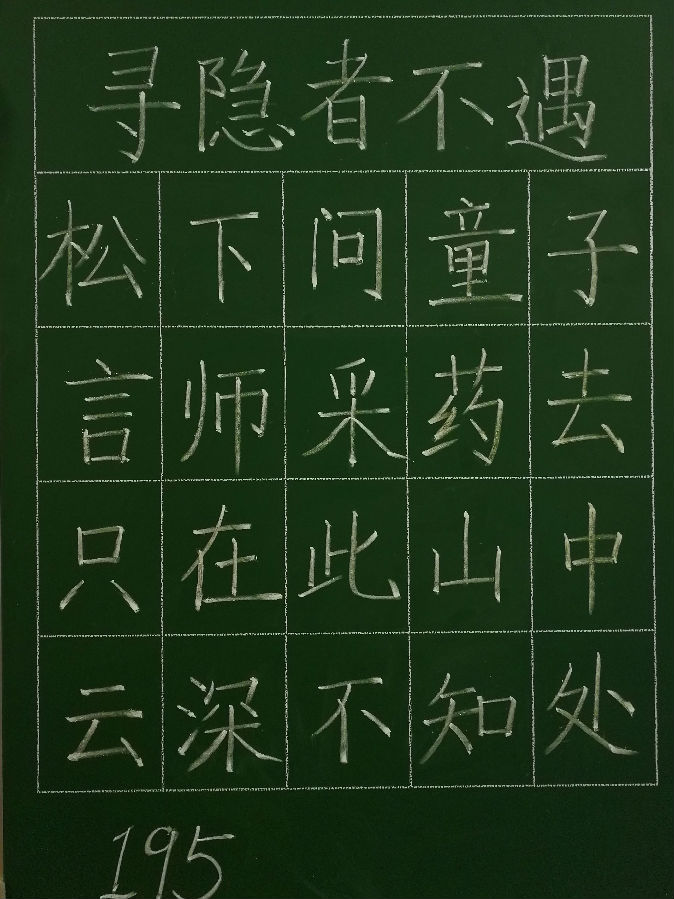 寻隐者不遇
松下问童子
言师采药去
只在此山中
云深不知处
195